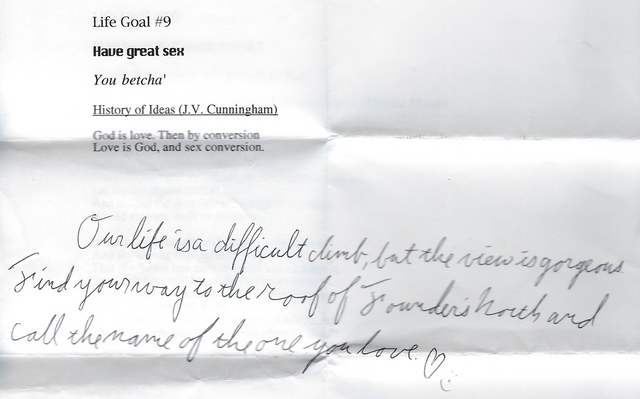 Life Goal #9
Have great sex
You betcha'
History of Ideas (J.V. Cunningham)
God is love. Then by conversion
Love is God, and sex conversion.
Our life is a difficult climb, but the view is gorgeous.
Find your way to the roof of Founder's North and
call the name of the one you love. ♡
:)